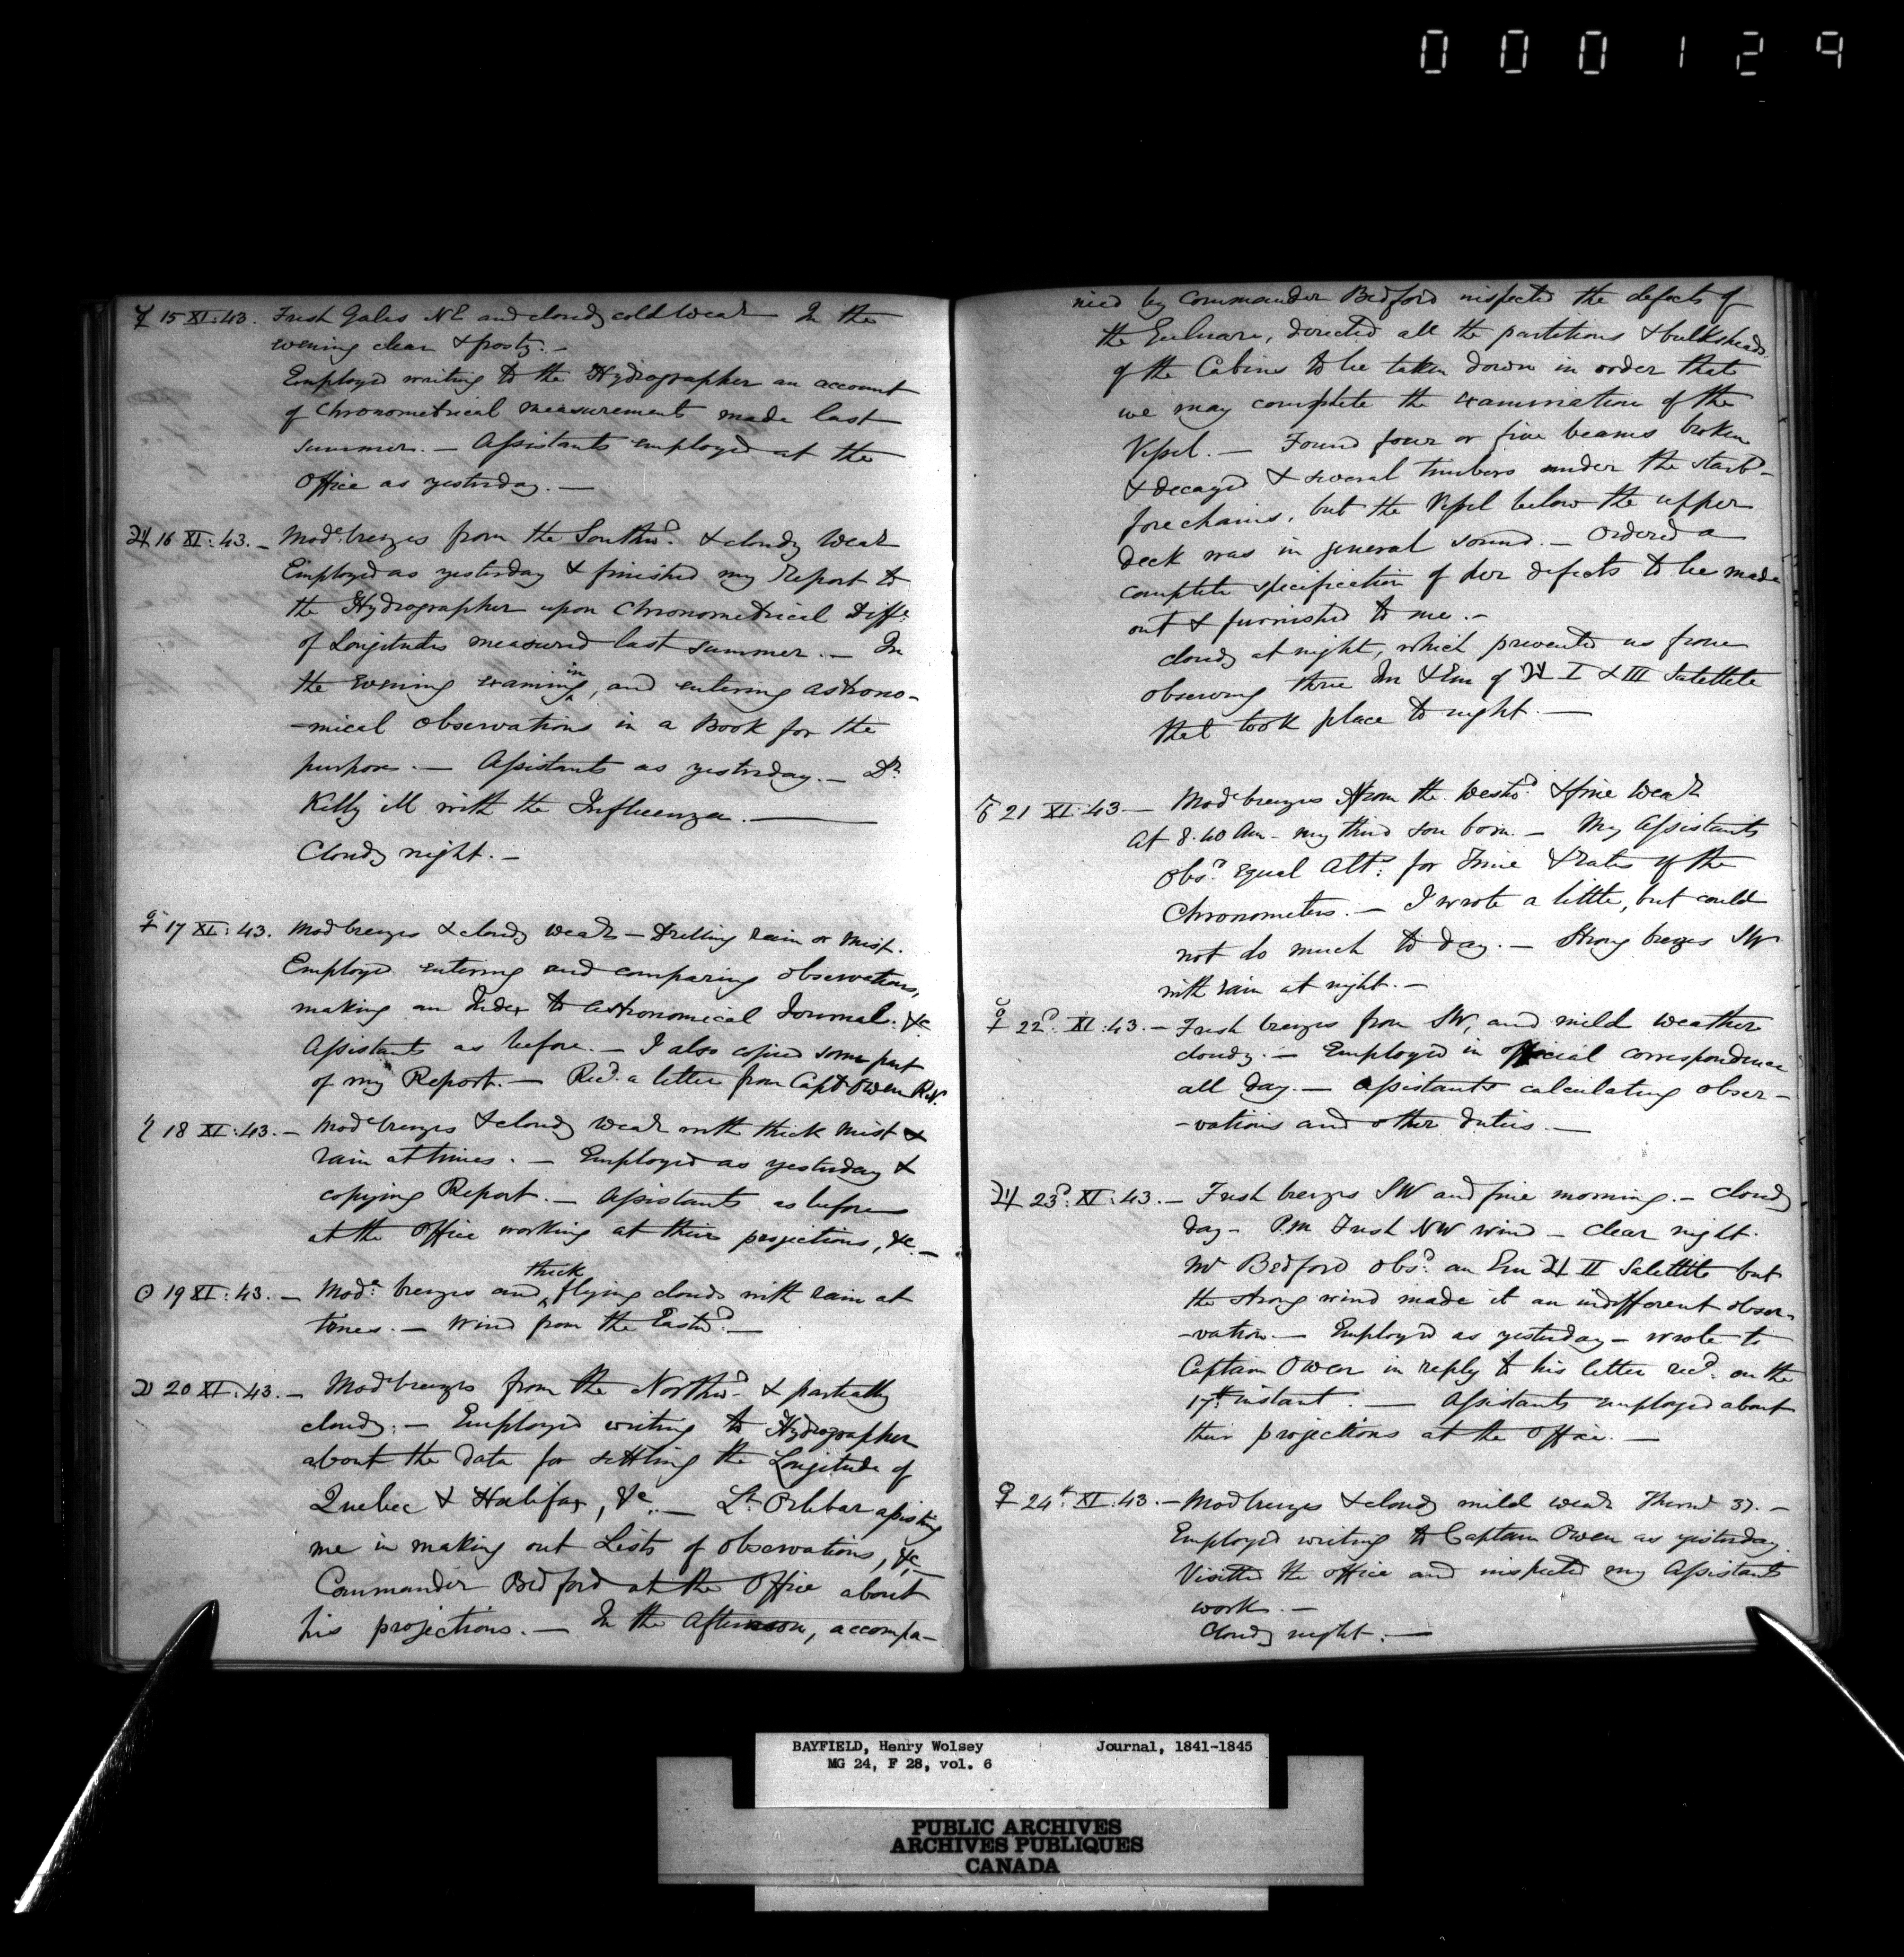 000129
☿ 15 XI:43. Fresh Gales NE and cloudy cold Wear In the
evening clear & frosty. —
Employed writing to the Hydrographer an account
of Chronometrical measurements made last
summer. — Assistants employed at the
Office as yesterday. —
♃ 16 XI:43. — Mode. breezes from the Southwd. & cloudy Wear
Employed as yesterday & finished my Report to
the Hydrographer upon Chronometrical Diffe.
of Longitudes measured last summer. — In
the evening examining, and entering astrono-
-mical observations in a Book for the
purpose. — Assistants as yesterday. — Dr.
Kelly ill with the Influenza. —
Cloudy night. —
♀ 17 XI:43. Mod breezes & cloudy wear — Drilling rain or Mist.
Employed entering and comparing observations,
making an Index to Astronomical Journal. &c
Assistants as before. — I also copied some part
of my Report. — Recd. a letter from Capt Owen R.N.
♄ 18 XI:43. — Mode breezes & cloudy Wear with thick Mist &
rain at times. — Employed as yesterday &
copying Report. — Assistants as before
at the Office working at their projections, &c —
☉ 19 XI:43. — Mode. breezes and thick flying clouds with rain at
times. — Wind from the Eastwd. —
☽ 20 XI:43. — Mode breezes from the Northwd. & partially
cloudy. — Employed writing to Hydrographer
about the data for settling the Longitude of
Quebec & Halifax, &c. — Lt. Orlebar assisting
me in making out Lists of observations, &c
Commander Bedford at the Office about
his projections. — In the afternoon, accompa-
nied by Commander Bedford inspected the defects of
the Gulnare, directed all the partitions & bulksheads
of the Cabins to be taken down in order that
we may complete the examination of the
Vessel. — Found four or five beams broken
& decayed & several timbers under the starbd-
forechains, but the Vessel below the upper
deck was in general sound. — Ordered a
complete specification of her defects to be made
out & furnished to me. —
cloudy at night, which prevented us from
observing three Im & Em of ♃ I & III Satellite
that took place to night. —
♂ 21 XI:43 — Mode breezes from the Westwd. & fine Wear
At 8.40 Am — my third son born. — My Assistants
Obsd. Equal Alts. for Time & Rates of the
Chronometers. — I wrote a little, but could
not do much to day. — Strong breezes SW
with rain at night. —
☿ 22d. XI:43. — Fresh breezes from SW, and mild weather
cloudy. — Employed in official correspondence
all day. — Assistants calculating obser-
-vations and other duties. —
♃ 23d. XI:43. — Fresh breezes SW and fine morning. — Cloudy
day — P.M Fresh NW wind — clear night.
Mr Bedford obsd. an Em ♃ II Satellite but
the strong wind made it an indifferent obser-
-vation. — Employed as yesterday — wrote to
Captain Owen in reply to his letter recd. on the
17th. instant. — Assistants employed about
their projections at the Office. —
♀ 24th. XI:43. — Mod breezes & cloudy mild wear Thermr 37. —
Employed writing to Captain Owen as yesterday.
Visited the office and inspected my Assistants
work. —
Cloudy night. —
BAYFIELD, Henry Wolsey Journal, 1841-1845
MG 24, F 28, vol. 6
PUBLIC ARCHIVES
ARCHIVES PUBLIQUES
CANADA